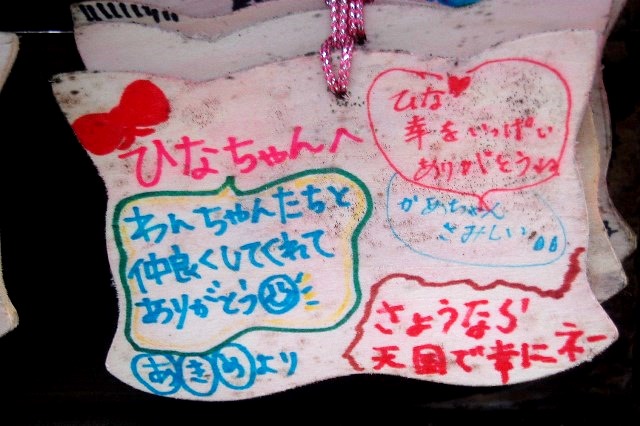 ひなちゃんへ
わんちゃんたちと
仲良くしてくれて
ありがとう
あきひより
ひな
幸をいっぱい
ありがとうね
かめちゃん
さみしい
さようなら
天国で幸にネー